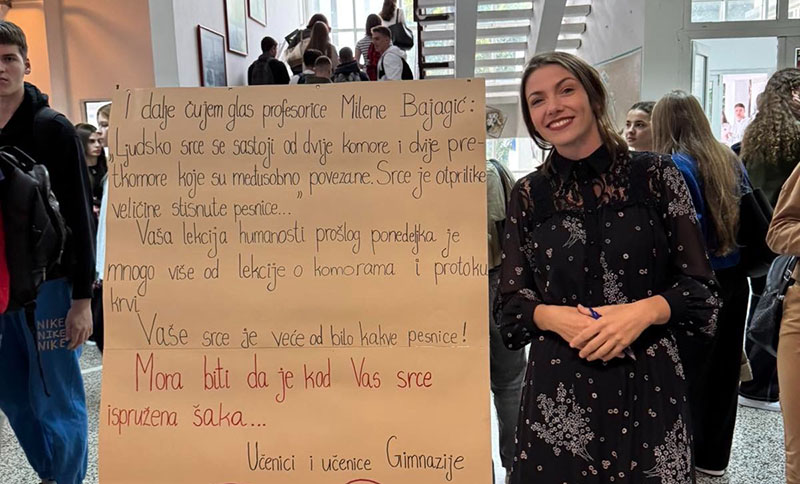 I dalje čujem glas profesorice Milene Bajagić:
„Ljudsko srce se sastoji od dvije komore i dvije pre-
tkomore koje su međusobno povezane. Srce je otprilike
veličine stisnute pesnice..."
Vaša lekcija humanosti prošlog ponedeljka je
mnogo više od lekcije o komorama i protoku
krvi
Vaše srce je veće od bilo kakve pesnice!
Mora biti da je kod Vas srce
ispružena šaka...
Učenici i učenice Gimnazije
NIKE
NIKE
NIKE